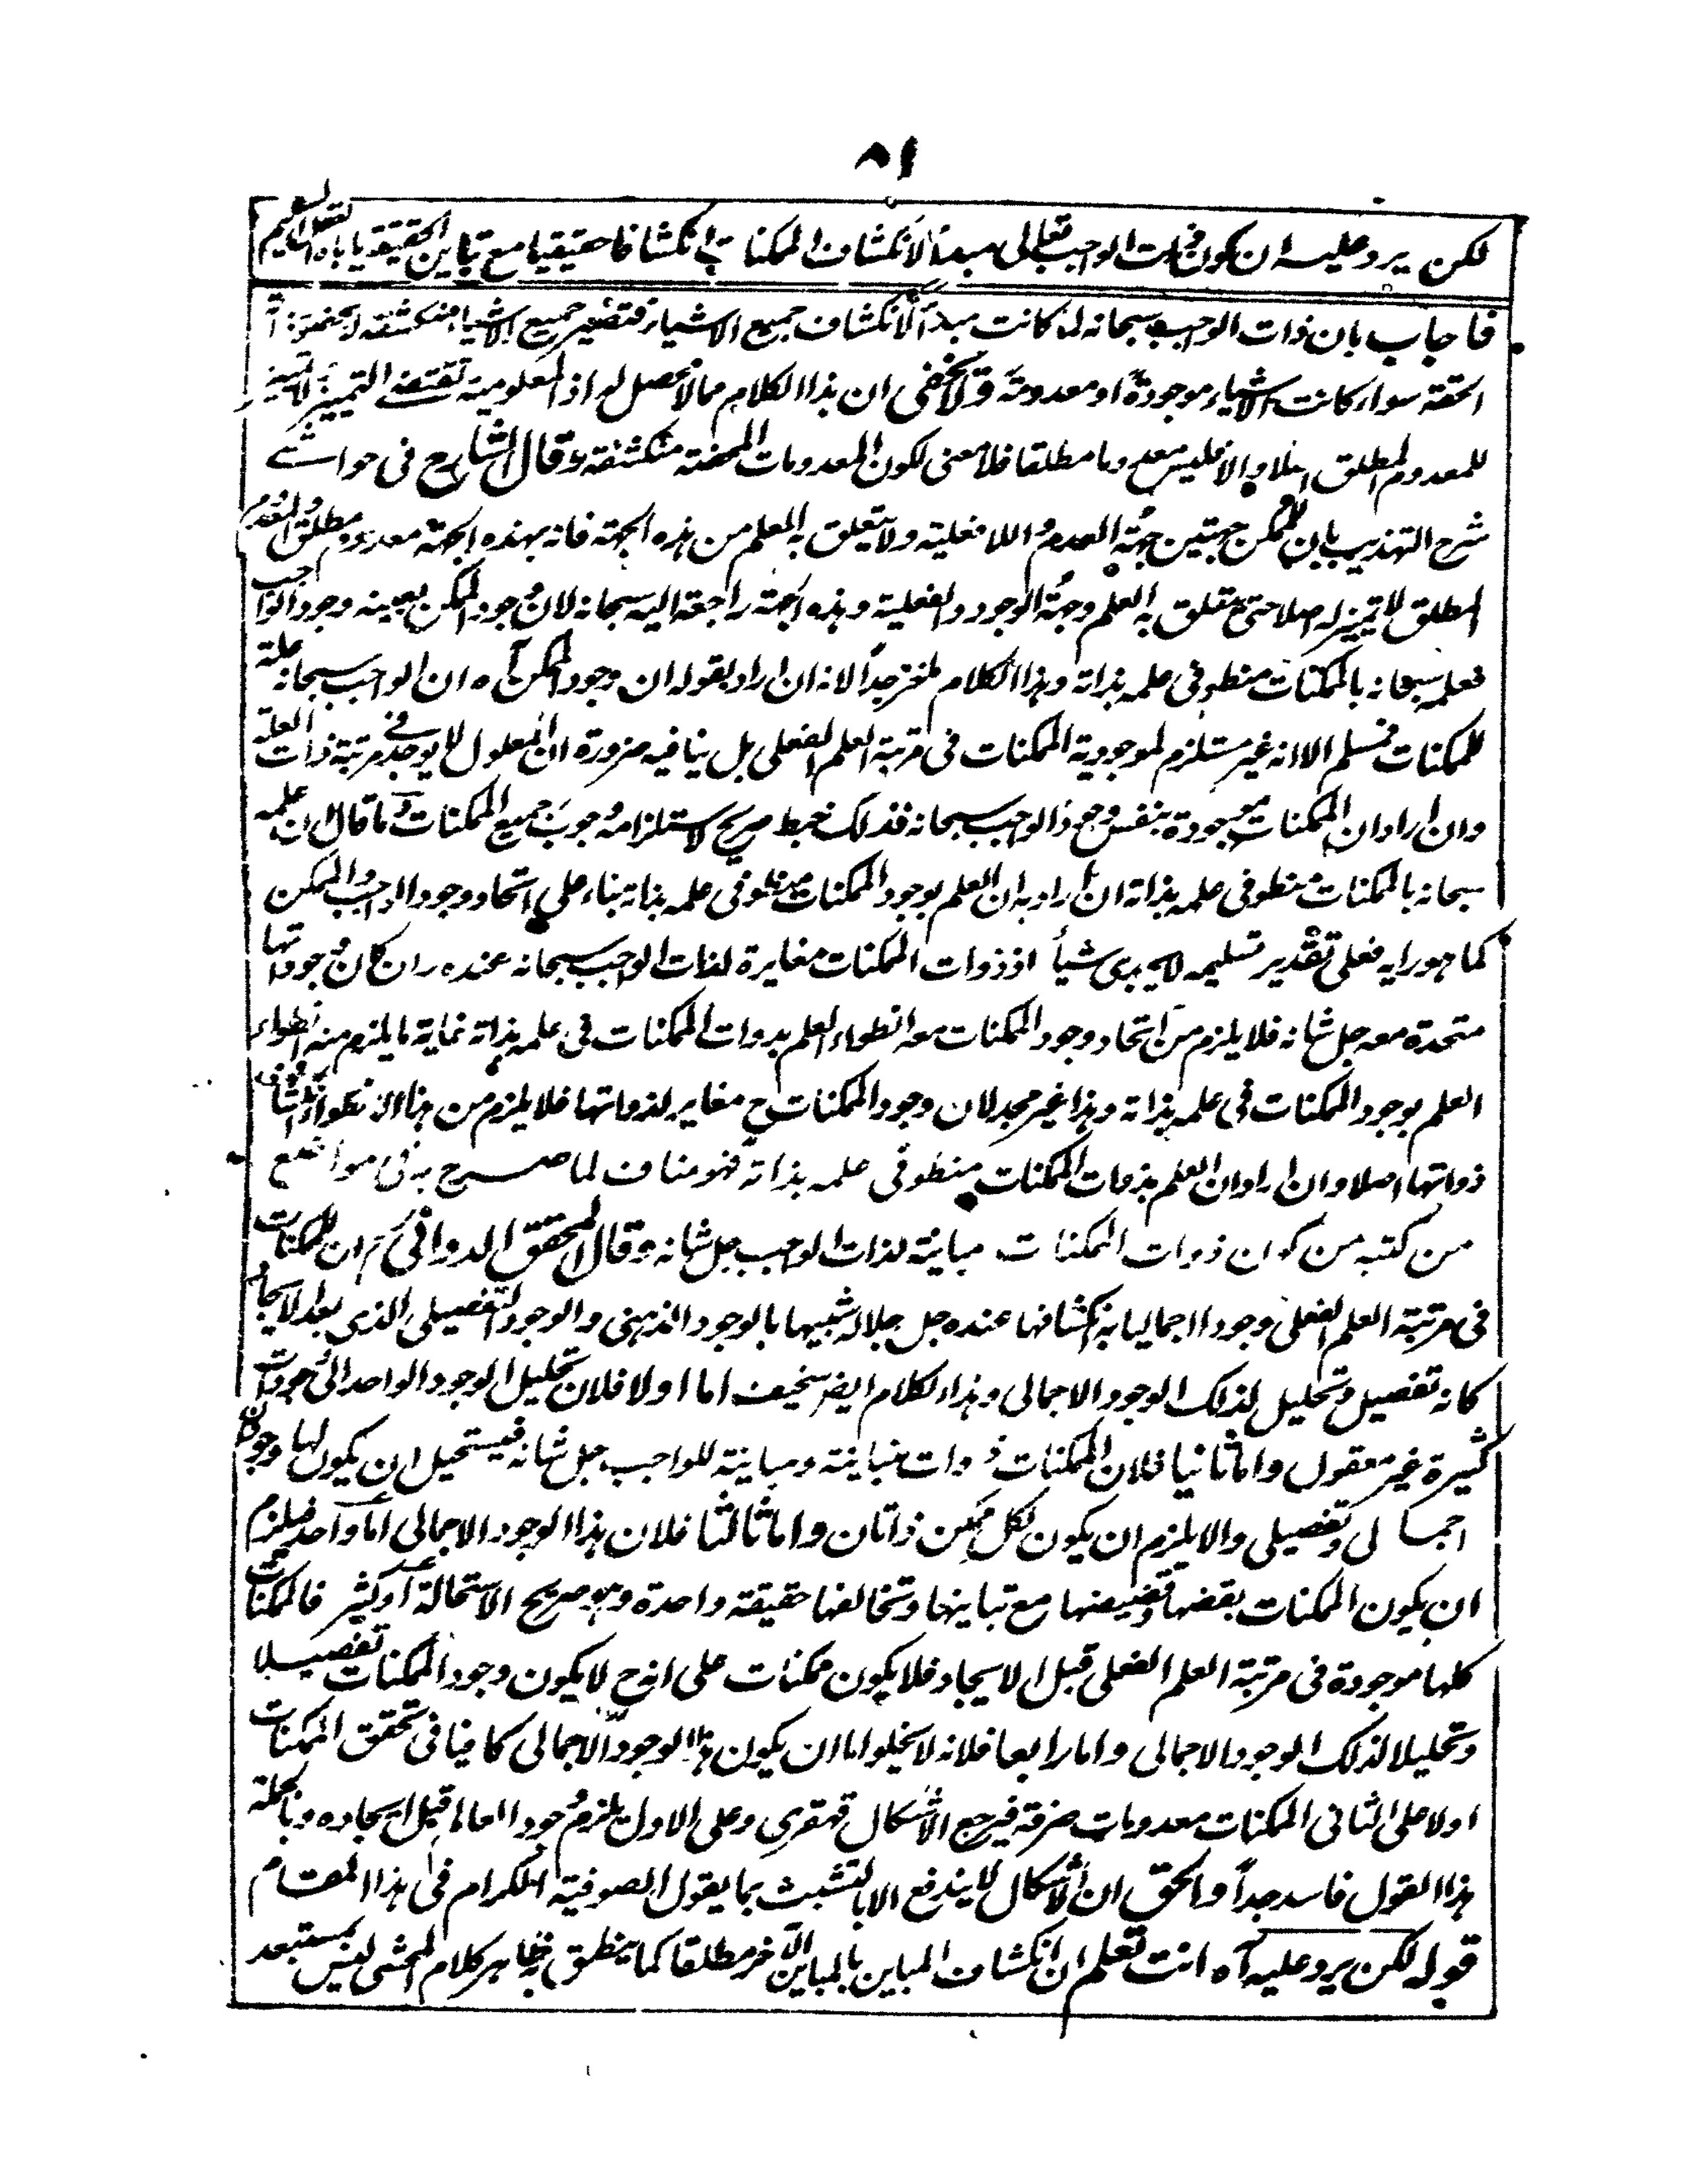 ٨١
لكن يرد عليه ان كون ذات الواجب تعالى مبدأ لانكشاف الممكنات انكشافا حقيقيا مع تباين الحقيقة ياباه العقل السليم
فاجاب بان ذات الواجب سبحانه لما كانت مبدأ لانكشاف جميع الاشياء فتصير جميع الاشياء منكشفة
الحقة سواء كانت الاشياء موجودة او معدومة ولا يخفى ان هذا الكلام مما لا محصل له اذ المعلومية تقتضى التميز ولا تميز
للمعدوم المطلق اصلا والا فليس معدوما مطلقا فلا معنى لكون المعدومات المحضة منكشفة وقال الشارح فى حواشى
شرح التهذيب بان للممكن جهتين جهة العدم واللا فعلية ولا يتعلق به العلم من هذه الجهة فانه بهذه الجهة معدوم مطلق والمعدوم
المطلق لا تميز له اصلا حتى يتعلق به العلم وجهة الوجود والفعلية وهذه الجهة راجعة اليه سبحانه لان وجود الممكن بعينه وجود الواجب
فعلمه سبحانه بالممكنات منطو فى علمه بذاته وهذا الكلام ملغز جدا لانه ان اراد بقوله ان وجود الممكن آه ان الواجب سبحانه علة
للممكنات فمسلم الا انه غير مستلزم لموجودية الممكنات فى مرتبة العلم الفعلى بل ينافيه ضرورة ان المعلول لا يوجد فى مرتبة ذات العلة
وان اراد ان الممكنات موجودة بنفس وجود الواجب سبحانه فذلك خبط صريح لاستلزامه وجوب جميع الممكنات وما قال ان علمه
سبحانه بالممكنات منطو فى علمه بذاته ان اراد به ان العلم بوجود الممكنات منطو فى علمه بذاته بناء على اتحاد وجود الواجب والممكن
كما هو رايه فعلى تقدير تسليمه لا يجدى شيأ اذ ذوات الممكنات مغايرة لذات الواجب سبحانه عنده وان كان وجوداتها
متحدة معه جل شانه فلا يلزم من اتحاد وجود الممكنات معه انطواء العلم بذوات الممكنات فى علمه بذاته غاية ما يلزم منه انطواء
العلم بوجود الممكنات فى علمه بذاته وهذا غير مجد لان وجود الممكنات ح مغاير لذواتها فلا يلزم من هذا الانطواء انكشاف
ذواتها اصلا وان اراد ان العلم بذوات الممكنات منطو فى علمه بذاته فهو مناف لما صرح به فى مواضع
من كتبه من كون ذوات الممكنات مباينة لذات الواجب جل شانه وقال المحقق الدوانى ان للممكنات
فى مرتبة العلم الفعلى وجودا اجماليا به انكشافها عنده جل جلاله شبيها بالوجود الذهنى والوجود التفصيلى الذى بعد الايجاد
كانه تفصيل وتحليل لذلك الوجود الاجمالى وهذا الكلام ايضا سخيف اما اولا فلان تحليل الوجود الواحد الى وجودات
كثيرة غير معقول واما ثانيا فلان الممكنات ذوات متباينة ومباينة للواجب جل شانه فيستحيل ان يكون لها وجودان
اجمالى وتفصيلى والا يلزم ان يكون لكل ممكن ذاتان واما ثالثا فلان هذا الوجود الاجمالى اما واحد فيلزم
ان يكون الممكنات بقضها وقضيضها مع تباينها وتخالفها حقيقة واحدة وهو صريح الاستحالة او كثير فالممكنات
كلها موجودة فى مرتبة العلم الفعلى قبل الايجاد فلا يكون ممكنات على انه ح لا يكون وجود الممكنات تفصيلا
وتحليلا لذلك الوجود الاجمالى واما رابعا فلانه لا يخلو اما ان يكون هذا الوجود الاجمالى كافيا فى تحقق الممكنات
او لا على الثانى الممكنات معدومات صرفة فيرجع الاشكال قهقرى وعلى الاول يلزم وجود العالم قبل ايجاده وبالجملة
هذا القول فاسد جدا والحق ان الاشكال لا يندفع الا بالتشبث بما يقول الصوفية الكرام فى هذا المقام
قوله لكن يرد عليه آه انت تعلم ان انكشاف المباين بالمباين الآخر مطلقا كما ينطق به ظاهر كلام المحشى ليس بمستبعد